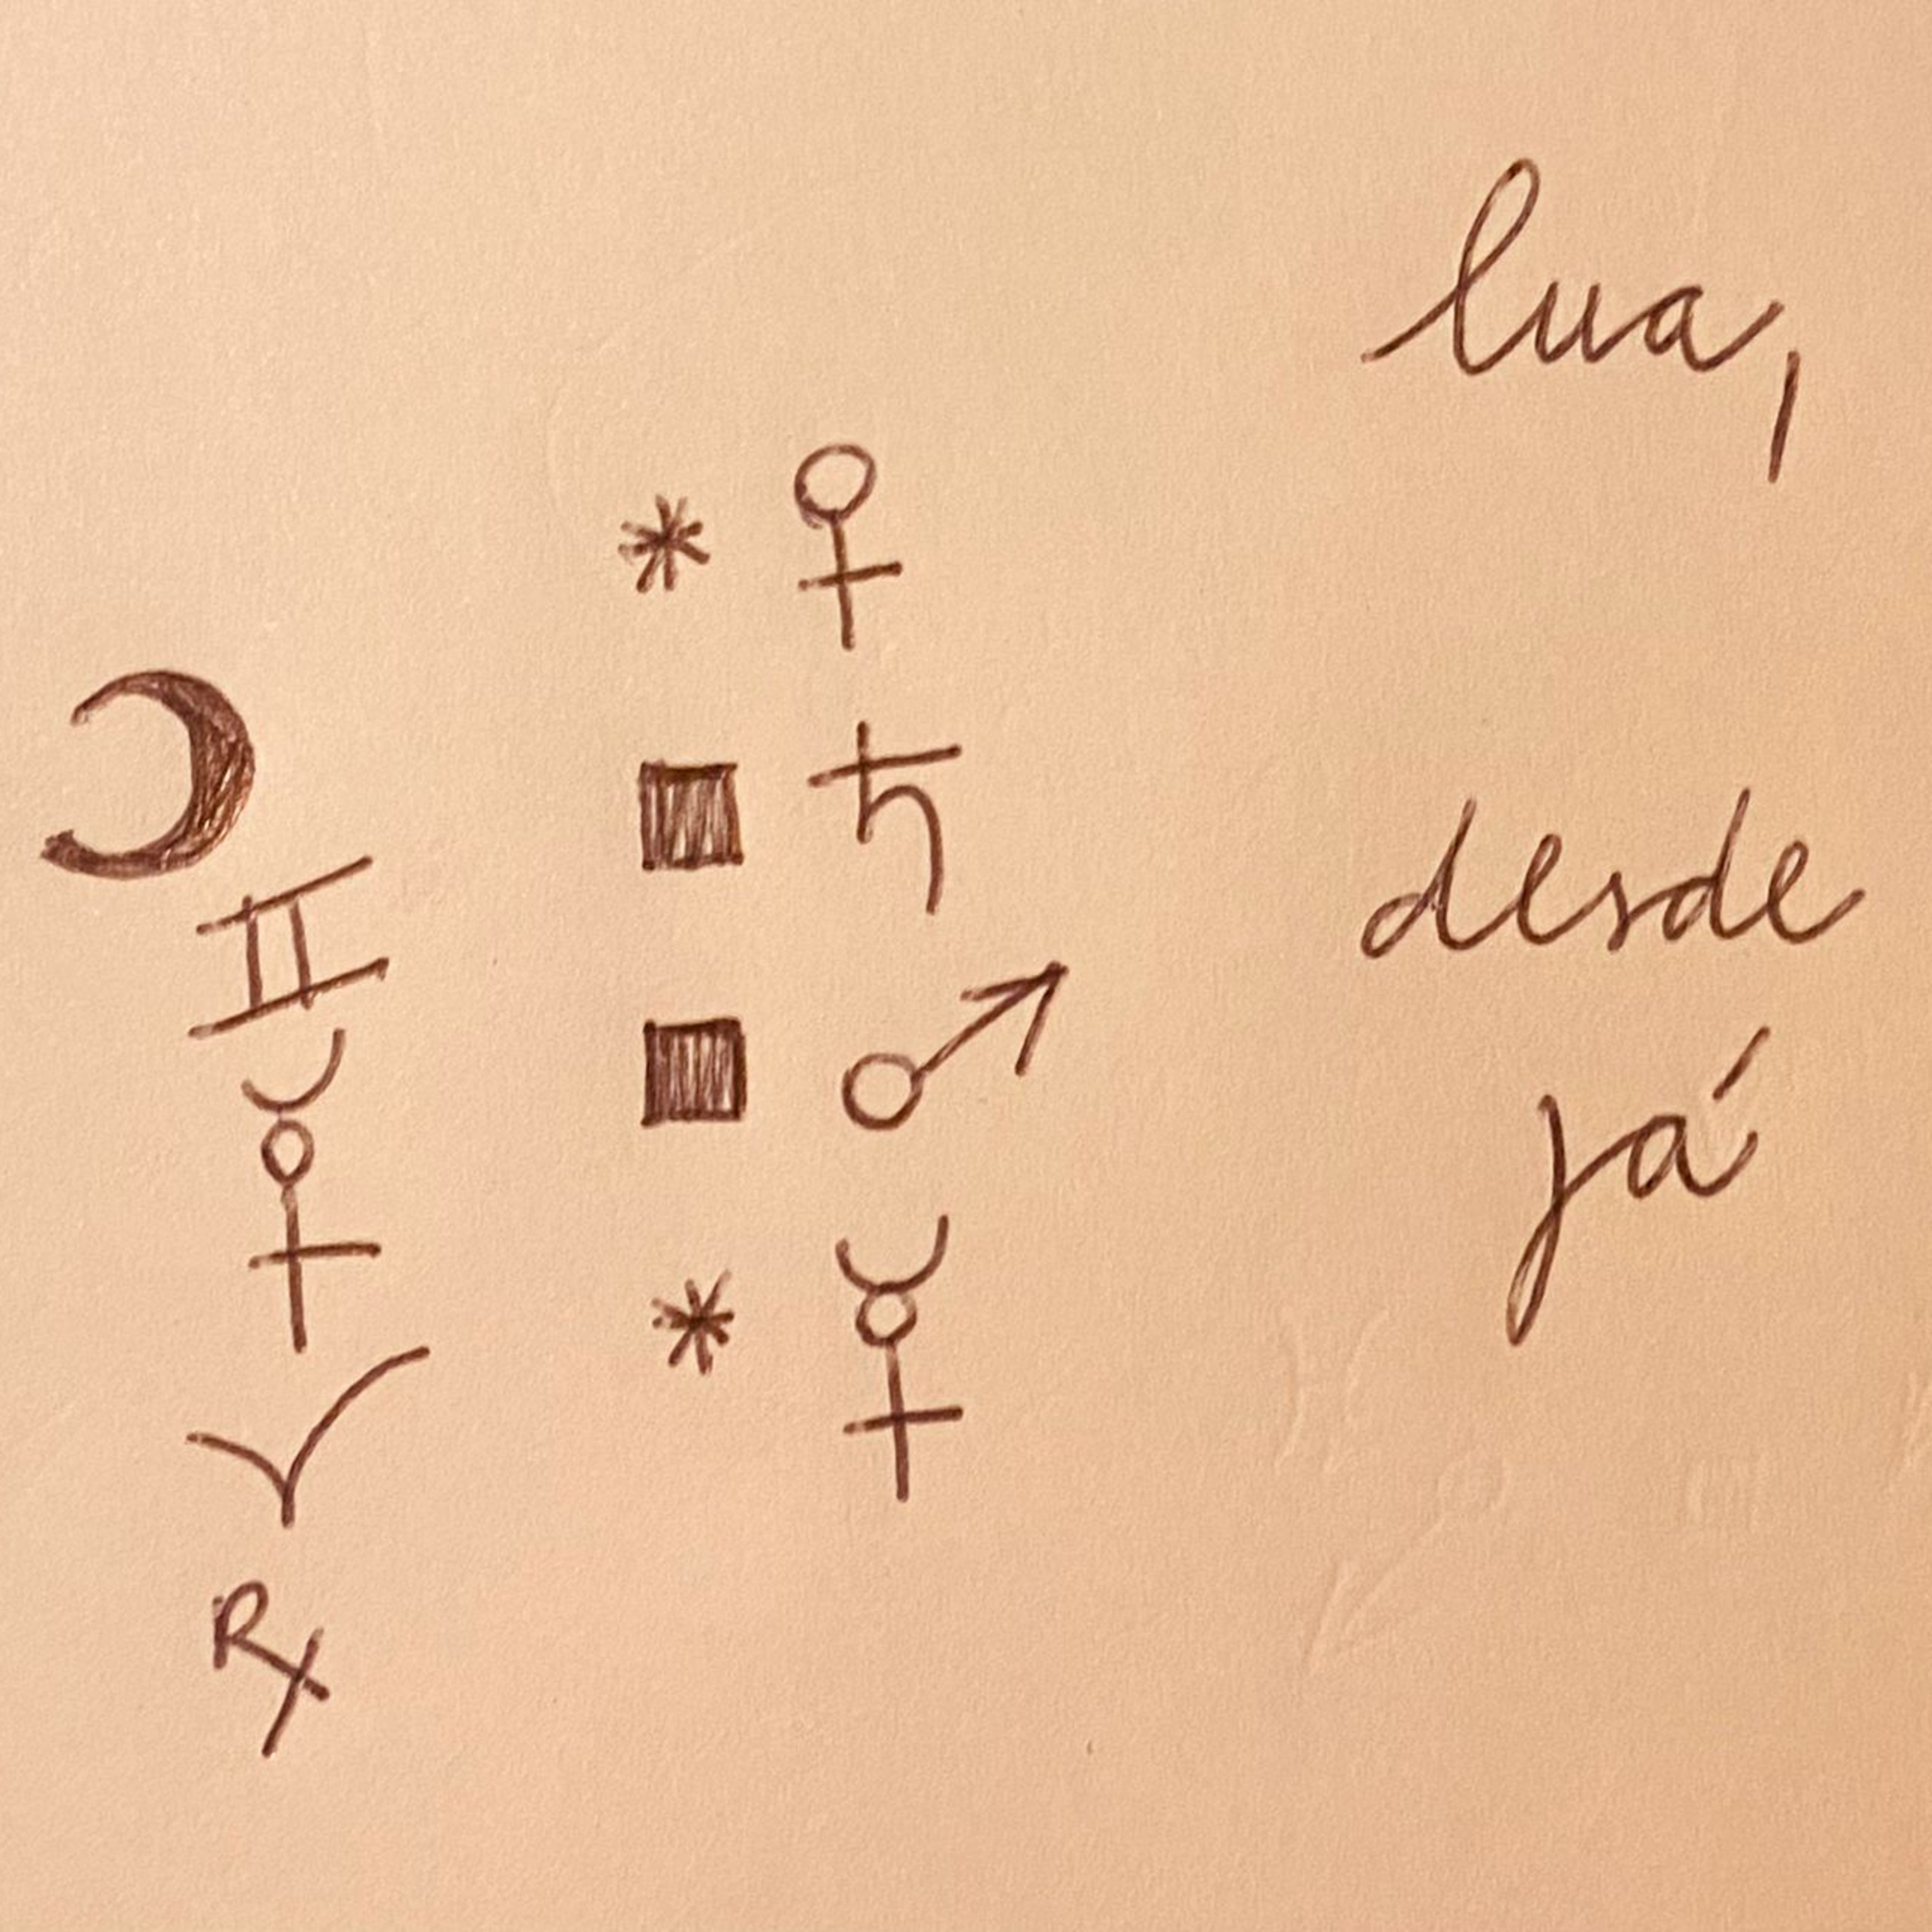 ☽
♊
☿
♈
℞
⚹ ♀
■ ♄
■ ♂
⚹ ☿
lua,
desde
já